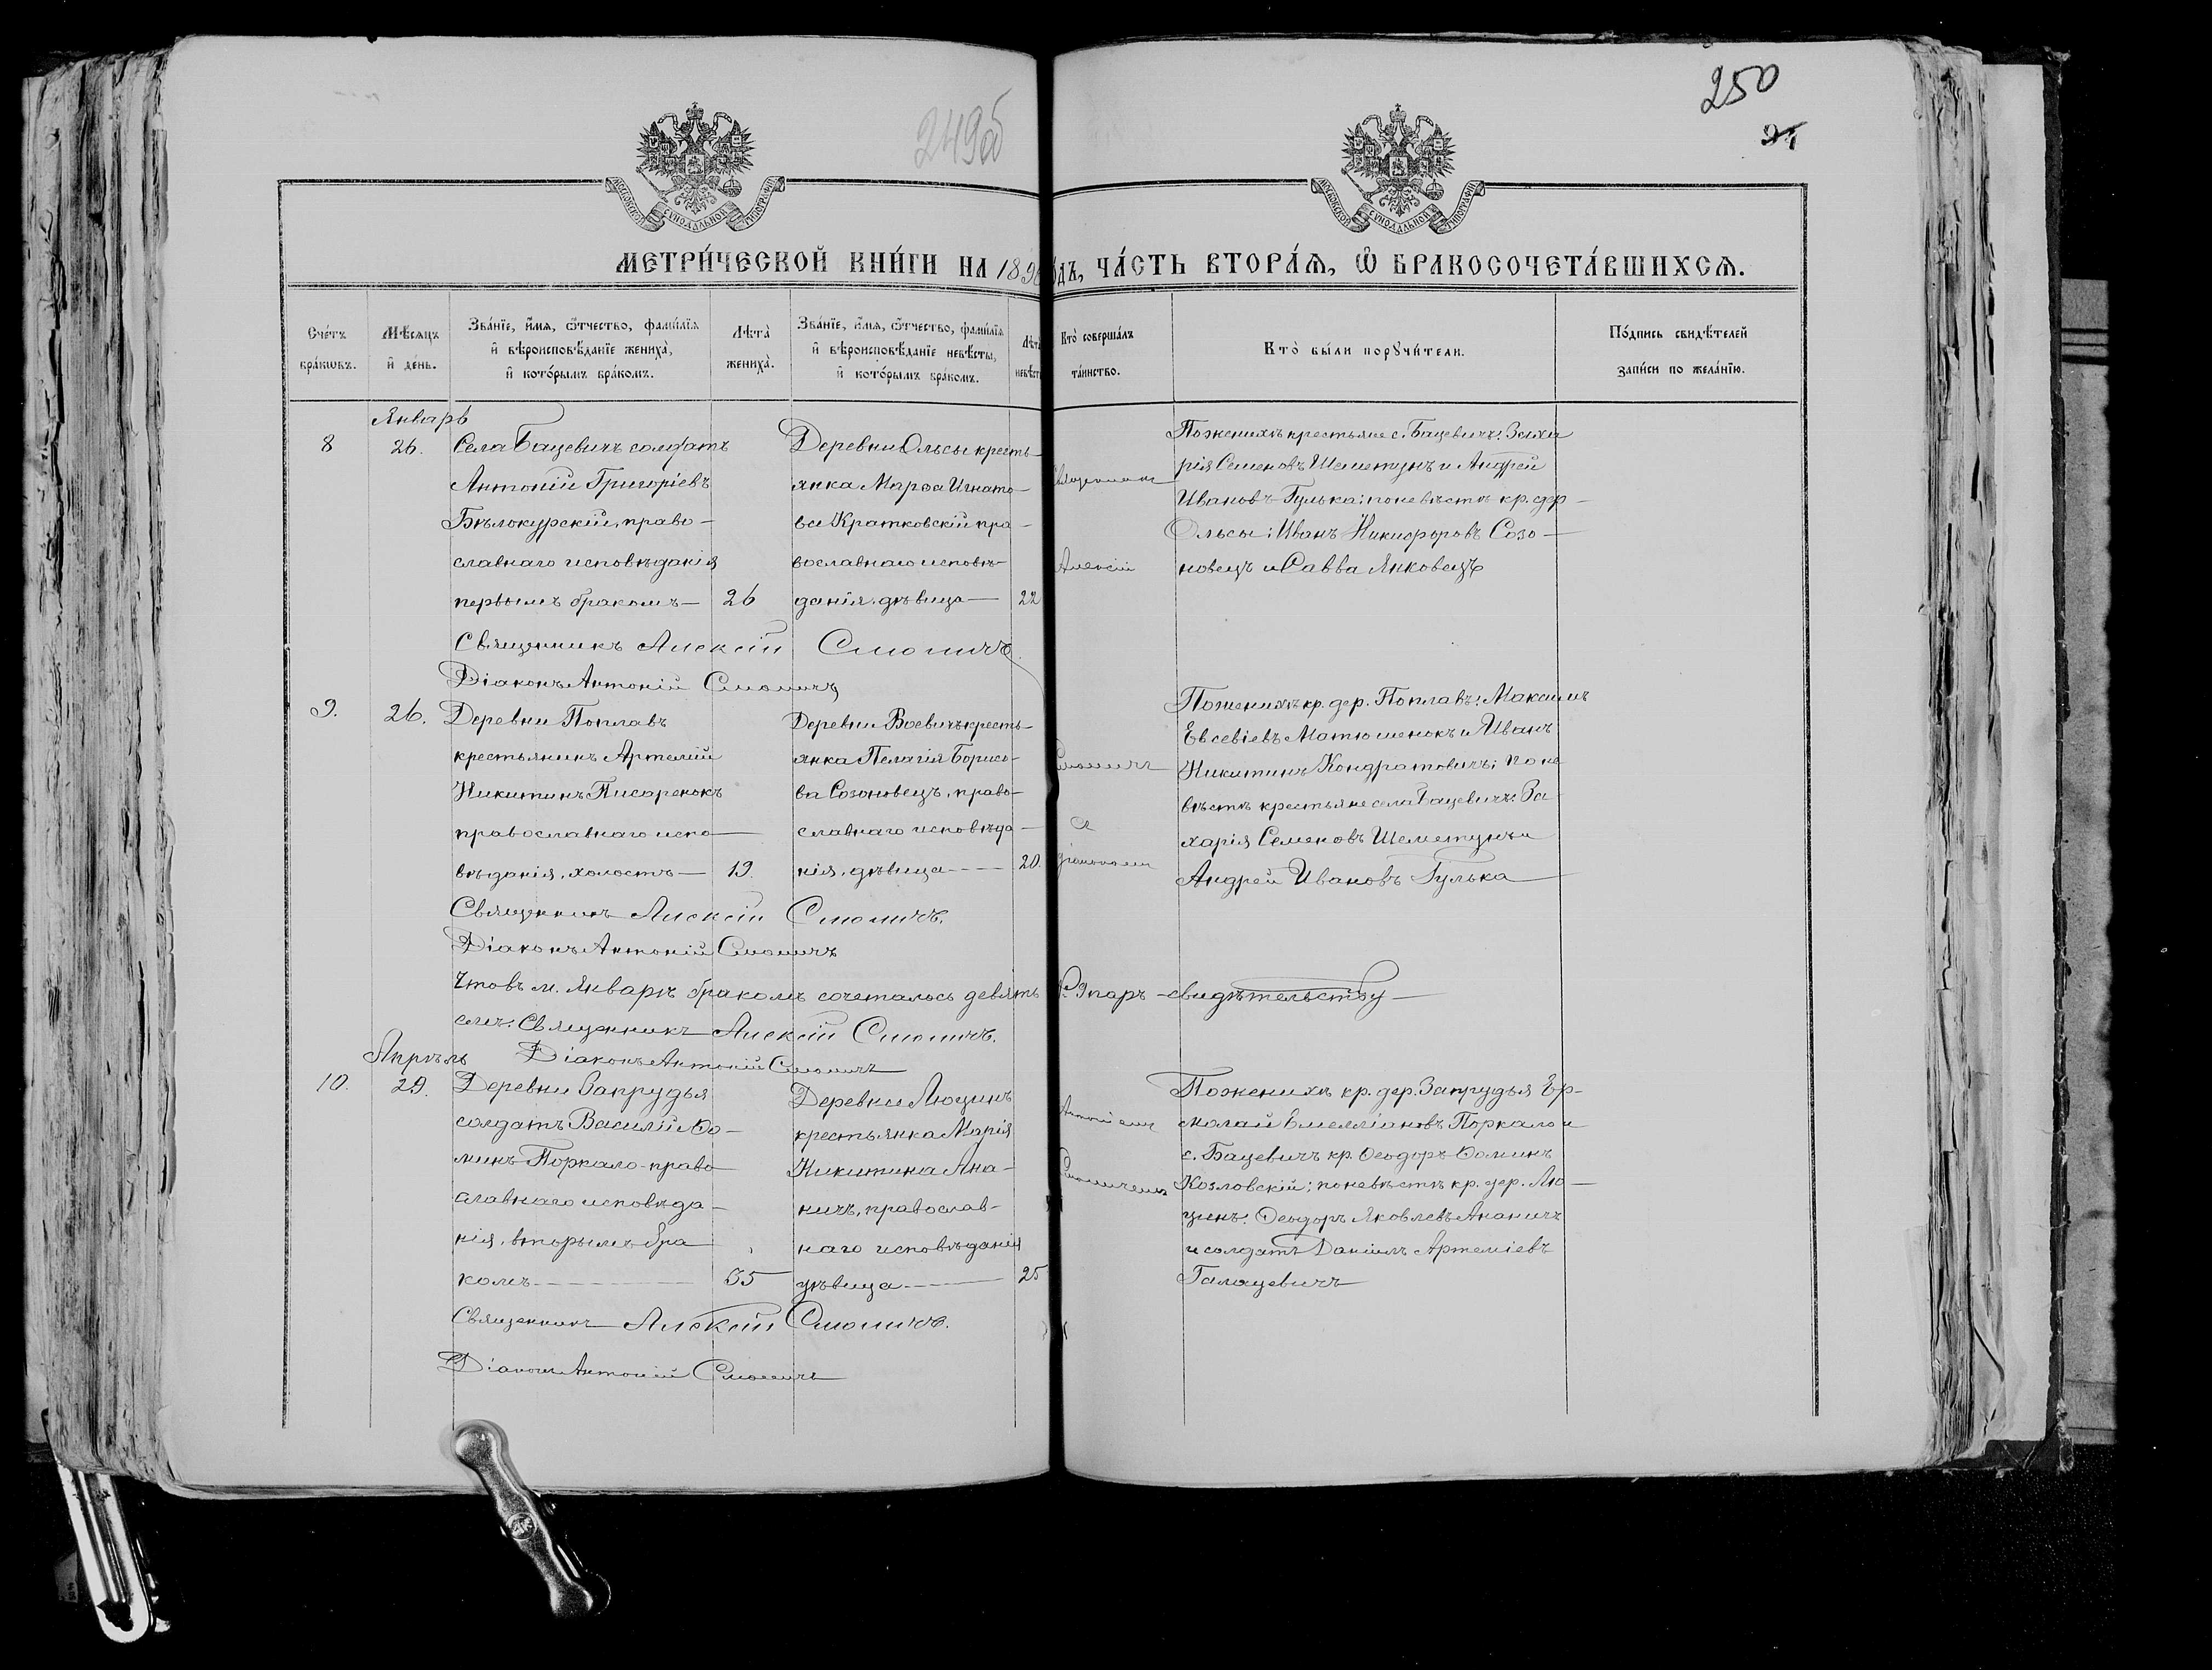 249об
250
МОСКОВСКОЙ СѴНОДАЛЬНОЙ ТИПОГРАФІИ
МОСКОВСКОЙ СѴНОДАЛЬНОЙ ТИПОГРАФІИ
МЕТРИ́ЧЕСКОЙ КНИ́ГИ НА 189 ОДЪ, ЧА́СТЬ ВТОРА́Ѧ, Ѽ БРАКОСОЧЕТА́ВШИХСѦ.
Сче́тъ бра́кѡвъ.
Мѣ́сѧцъ и҆ де́нь.
Зва́нїе, и҆́мѧ, ѻ҆́тчество, фами́лїѧ и҆ вѣроисповѣ́данїе жениха̀, и҆ кото́рымъ бра́комъ.
Лѣта̀ жениха̀.
Зва́нїе, и҆́мѧ, ѻ҆́тчество, фами́лїѧ и҆ вѣроисповѣ́данїе невѣ́сты, и҆ кото́рымъ бра́комъ.
Лѣта невѣст
Кто̀ соверша́лъ та́инство.
Кто̀ бы́ли порꙋчи́тели.
По́дпись свидѣ́телей за́писи по жела́нїю.
Январь
8
26.
Села Бацевичъ солдатъ
Антоній Григоріевъ
Бѣлокурскій, право-
славнаго исповѣданія
первымъ бракомъ — 26
Деревни Ольсы кресть-
янка Марѳа Игнато-
ва Кратковскій пра-
вославнаго исповѣ-
данія, дѣвица — 22
Священникъ
Алексій
По женихѣ крестьяне с. Бацевичъ: Заха
рія Семеновъ Шеметунъ и Андрей
Ивановъ Гулька; по невѣстѣ кр. дер-
Ольсы: Иванъ Никифоровъ Созо-
новецъ и Савва Янковецъ
Священникъ Алексій Смоличъ.
Діаконъ Антоній Смоличъ
9.
26.
Деревни Поплавъ
крестьянинъ Артемій
Никитинъ Писаренокъ
православнаго испо-
вѣданія, холостъ — 19.
Деревни Воевичъ кресть-
янка Пелагія Борисо-
ва Созоновецъ, право-
славнаго исповѣда-
нія, дѣвица — 20.
Смоличъ
съ
діакономъ
По женихѣ кр. дер. Поплавъ: Максимъ
Евсевіевъ Матюшенокъ и Иванъ
Никитинъ Кондратовичъ; по не
вѣстѣ крестьяне села Бацевичъ: За-
харія Семеновъ Шеметунъ и
Андрей Ивановъ Гулька
Священникъ Алексій Смоличъ.
Діаконъ Антоній Смоличъ
Что въ м. Январѣ бракомъ сочеталось девять 9 паръ — свидѣтельству-
емъ: Священникъ Алексій Смоличъ.
Діаконъ Антоній Смоличъ
Апрѣль
10.
29.
Деревни Запрудья
солдатъ Василій Ѳо-
минъ Поркало право
славнаго исповѣда-
нія, вторымъ бра
комъ — 35
Деревни Люцинъ
крестьянка Марія
Никитина Ана-
ничъ, православ-
наго исповѣданія
дѣвица — 25
Антоніемъ
Смоличемъ
По женихѣ кр. дер. Запрудья Ер-
молай Емеліановъ Поркало и
с. Бацевичъ кр. Ѳеодоръ Ѳоминъ
Козловскій; по невѣстѣ кр. дер. Лю-
цинъ: Ѳеодоръ Яковлевъ Ананичъ
и солдатъ Даніилъ Артеміевъ
Галацевичъ
Священникъ Алексій Смоличъ.
Діаконъ Антоній Смоличъ